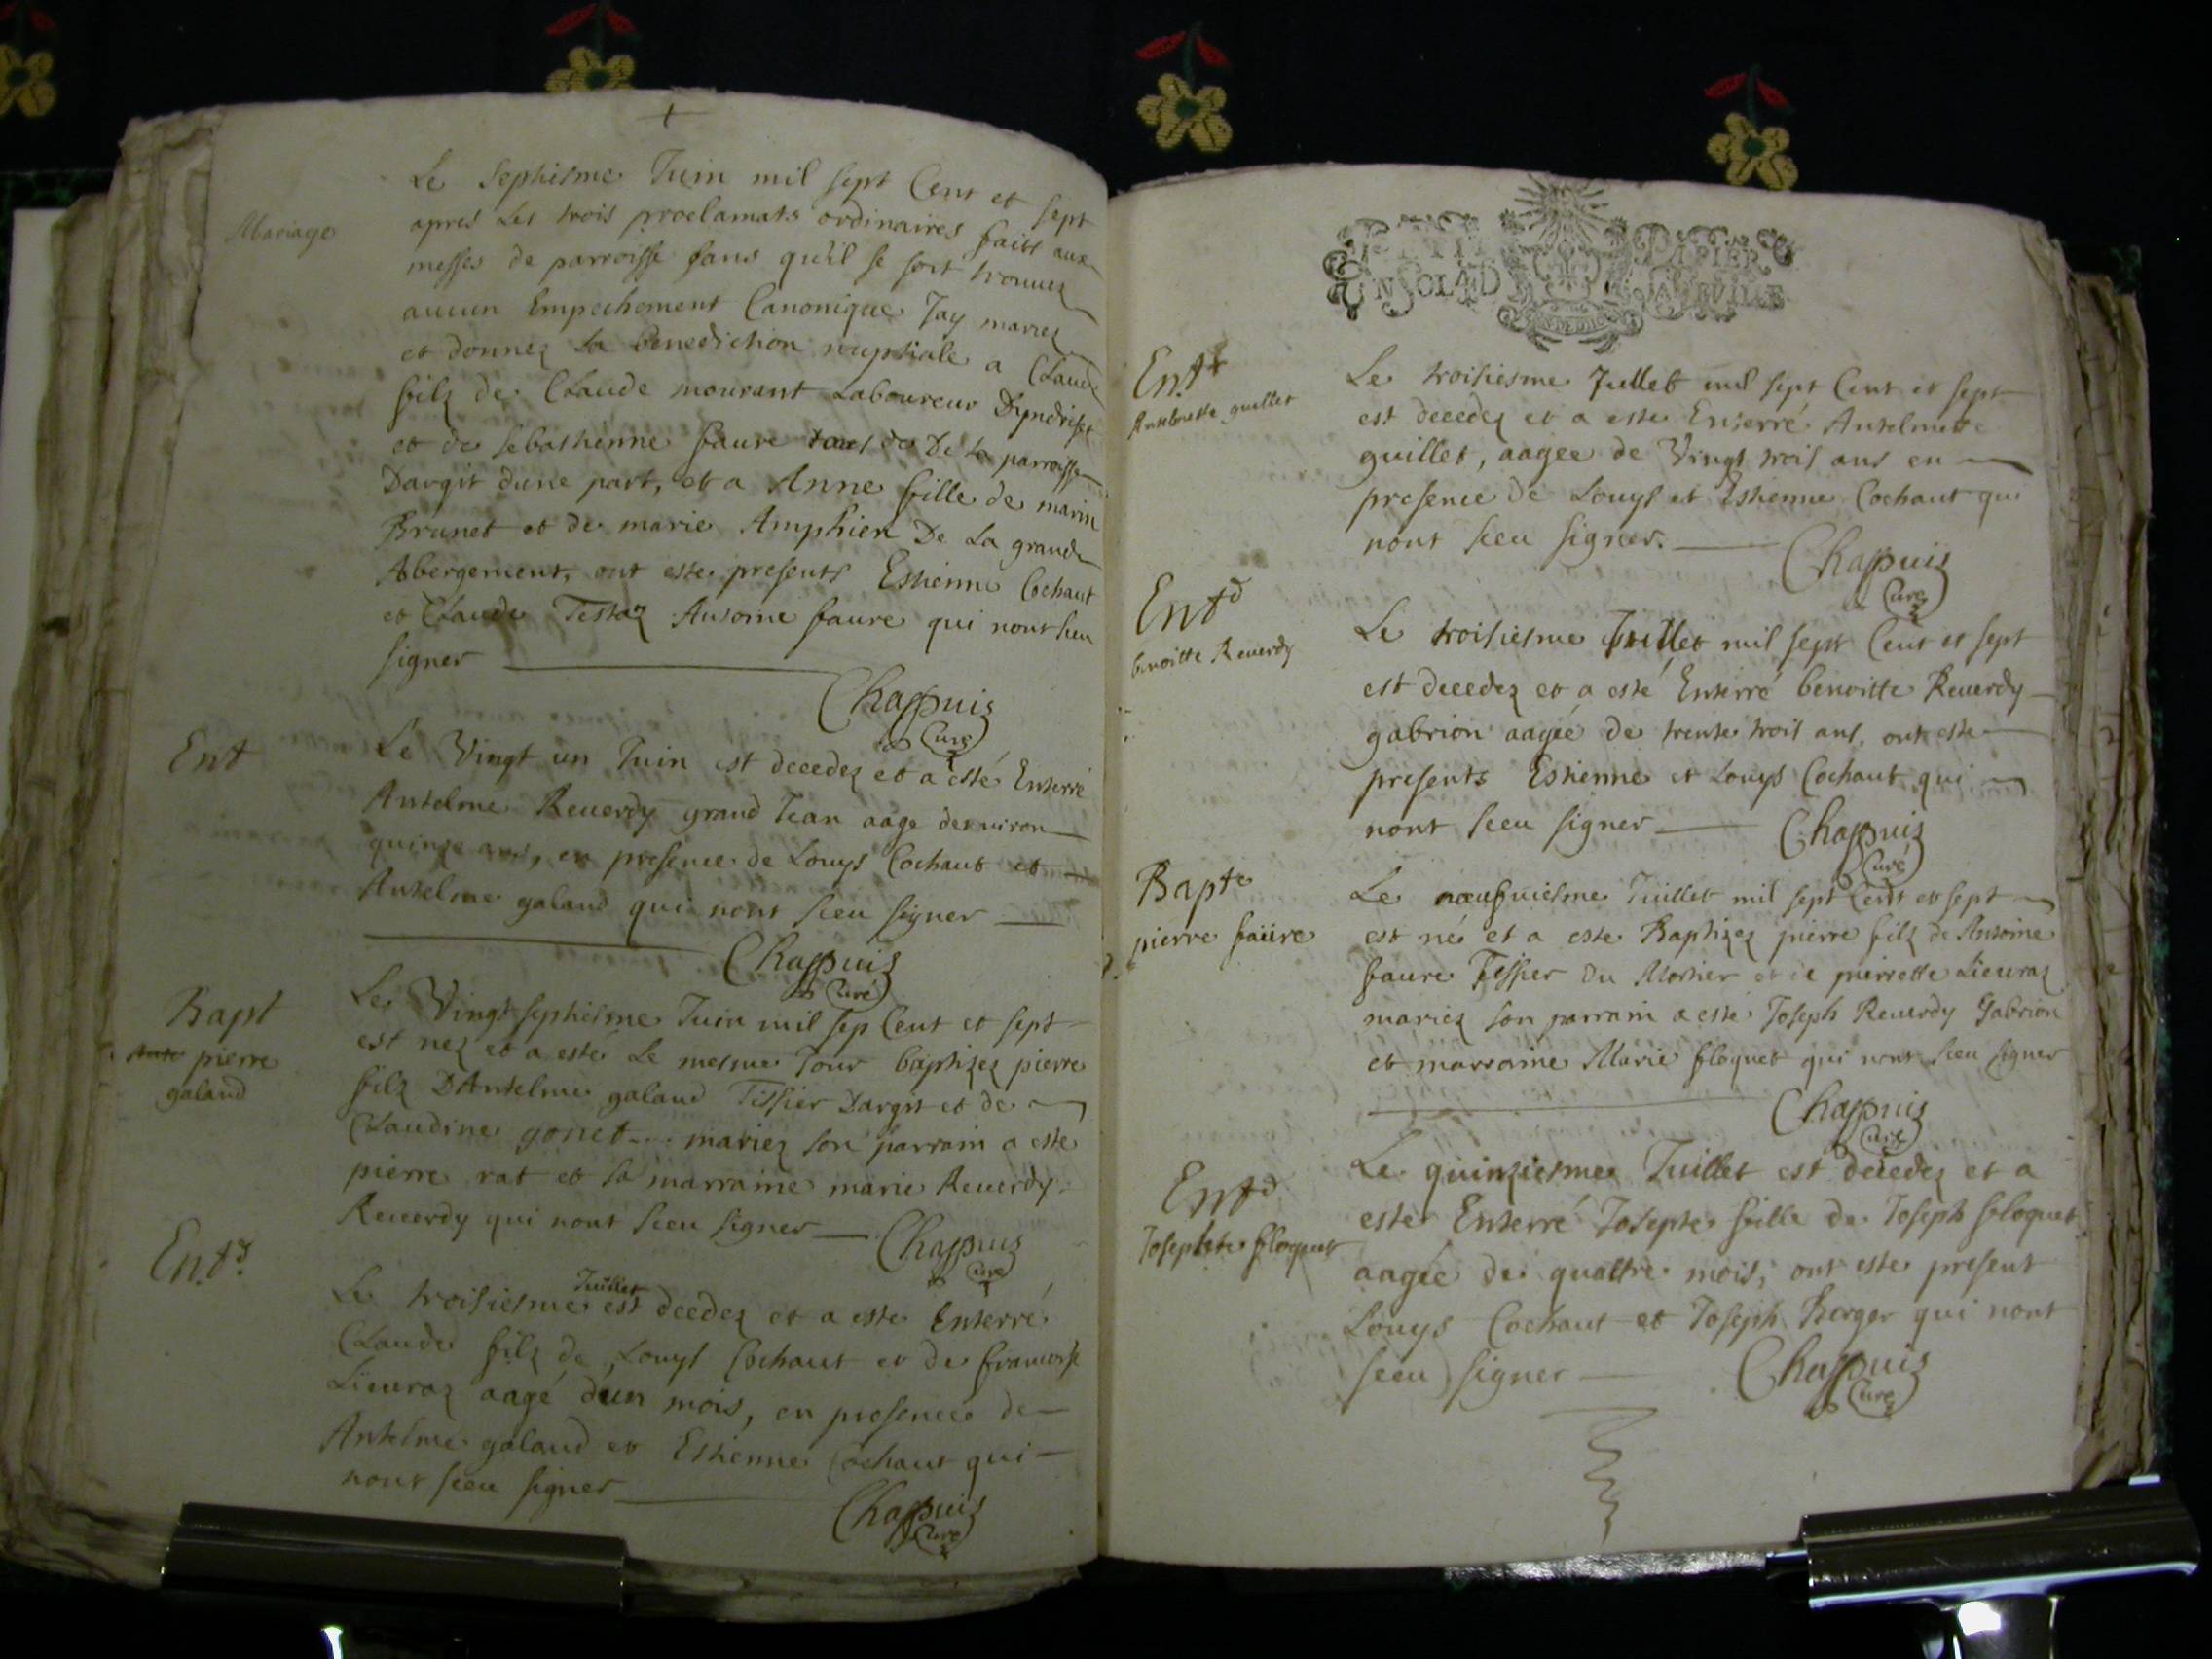 Mariage
Le septiesme Juin mil sept Cent et sept
apres les trois proclamats ordinaires faits aux
messes de parroisse sans qu'il se soit trouuez
aucun Empechement Canonique Jay mariez
et donnez la benediction nuptiale a Claude
filz de Claude mourant Laboureur
et de sebastienne faure de De la parroisse
Dargit dune part, et a Anne fille de marin
Brunet et de marie Amphien De La grande
Abergement, ont este presents Estienne Cochaut
et Claude Testaz Antoine faure qui nont sceu
signer
Chappuis
Curé
Ent
Le Vingt un Juin est decedez et a esté Enterré
Antelme Reuerdy grand Jean aage denuiron
quinze ans, en presence de Louys Cochaut et
Antelme galand qui nont sceu signer
Chappuis
Curé
Bapt
pierre
galand
Le Vingt septiesme Juin mil sep Cent et sept
est nez et a esté Le mesme Jour baptizez pierre
filz DAntelme galand Tissier Dargit et de
Claudine gonet mariez son parrain a este
pierre rat et sa marraine marie Reuerdy
Reuerdy qui nont sceu signer
Chappuis
Curé
Entd.
Juillet
Le troisiesme est deedez et a este Enterré
Claude filz de Louys Cochaut et de francoise
Lieuraz aagé dun mois, en presence de
Antelme galand et Estienne Cochaut qui
nont sceu signer
Chappuis
Curé
Ent
Antelmette guillet
Le troisiesme Juillet mil sept Cent et sept
est decedez et a este Enterré Antelmette
guillet, aagee de Vingt trois ans en
presence de Louys et Estienne Cochaut qui
nont sceu signer.
Chappuis
Curé
Entd
benoitte Reuerdy
Le troisiesme Juillet mil sept Cent et sept
est decedez et a esté Enterré benoitte Reuerdy
gabrion aagée de trente trois ans, ont este
presents Estienne et Louys Cochaut qui
nont sceu signer
Chappuis
Curé
Bapte
pierre faure
Le nœufuiesme Juillet mil sept Cent et sept
est né et a este Baptizez pierre filz de Antoine
faure Tissier du Mortier et de pierrette Lieuraz
mariez son parrain a esté Joseph Reuerdy Gabrion
et marraine Marie floquet qui nont sceu signer
Chappuis
Curé
Entd
Josephte floquet
Le quinziesme Juillet est decedez et a
este Enterré Josepte fille de Joseph floquet
aagée de quattre mois, ont este present
Louys Cochaut et Joseph Berger qui nont
sceu signer
Chappuis
Curé